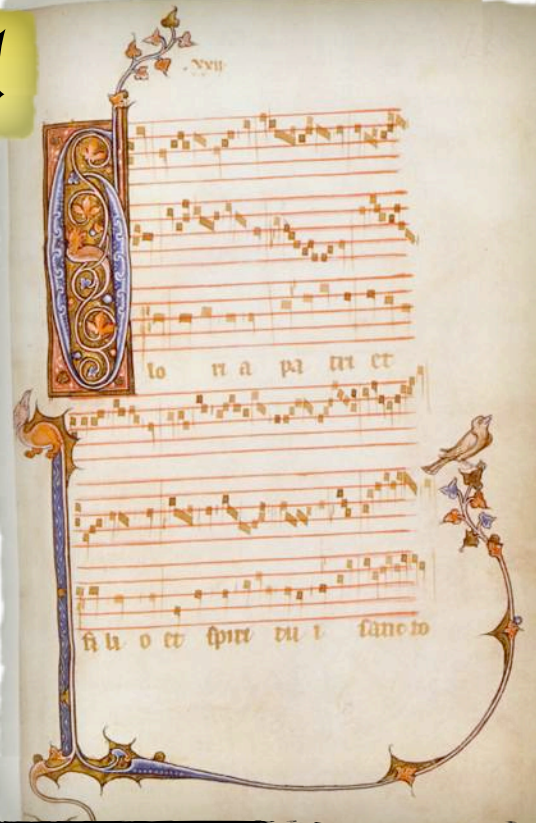 .xxii.
lo ri a pa tri et
fi li o et spiri tu i sanc to